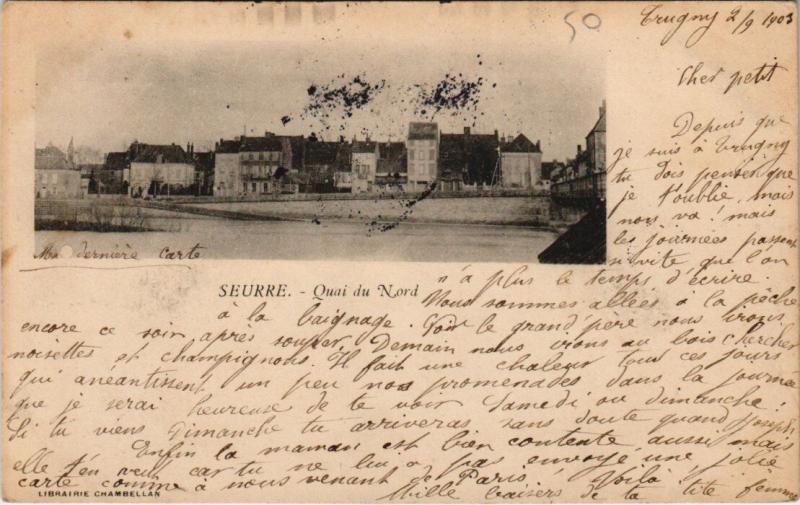 50
Trugny 2/9 1903
Cher petit
Depuis que
je suis à Trugny
tu dois penser que
je t'oublie, mais
non va! mais
les journées passent
si vite que l'on
n'a plus le temps d'écrire.
Ma dernière carte
SEURRE. - Quai du Nord
Nous sommes allées à la pêche
à la baignage. Voir le grand'père nous irons
encore ce soir après souper. Demain nous irons au bois chercher
noisettes et champignons. Il fait une chaleur tous ces jours
qui anéantissent un peu nos promenades dans la journée
que je serai heureuse de te voir Samedi ou dimanche!
Si tu viens Dimanche tu arriveras sans doute quand Joseph
Enfin la maman est bien contente aussi mais
elle t'en veut car tu ne lui a pas envoyé une jolie
carte comme à nous venant de Paris! Voilà!
Mille baisers de ta tite femme
LIBRAIRIE CHAMBELLAN